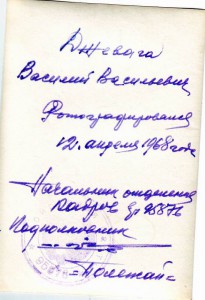 Джевага
Василий Васильевич
Фотографировался
12 апреля 1968 года
Начальник отделения
кадров
Подполковник
=Полежай=